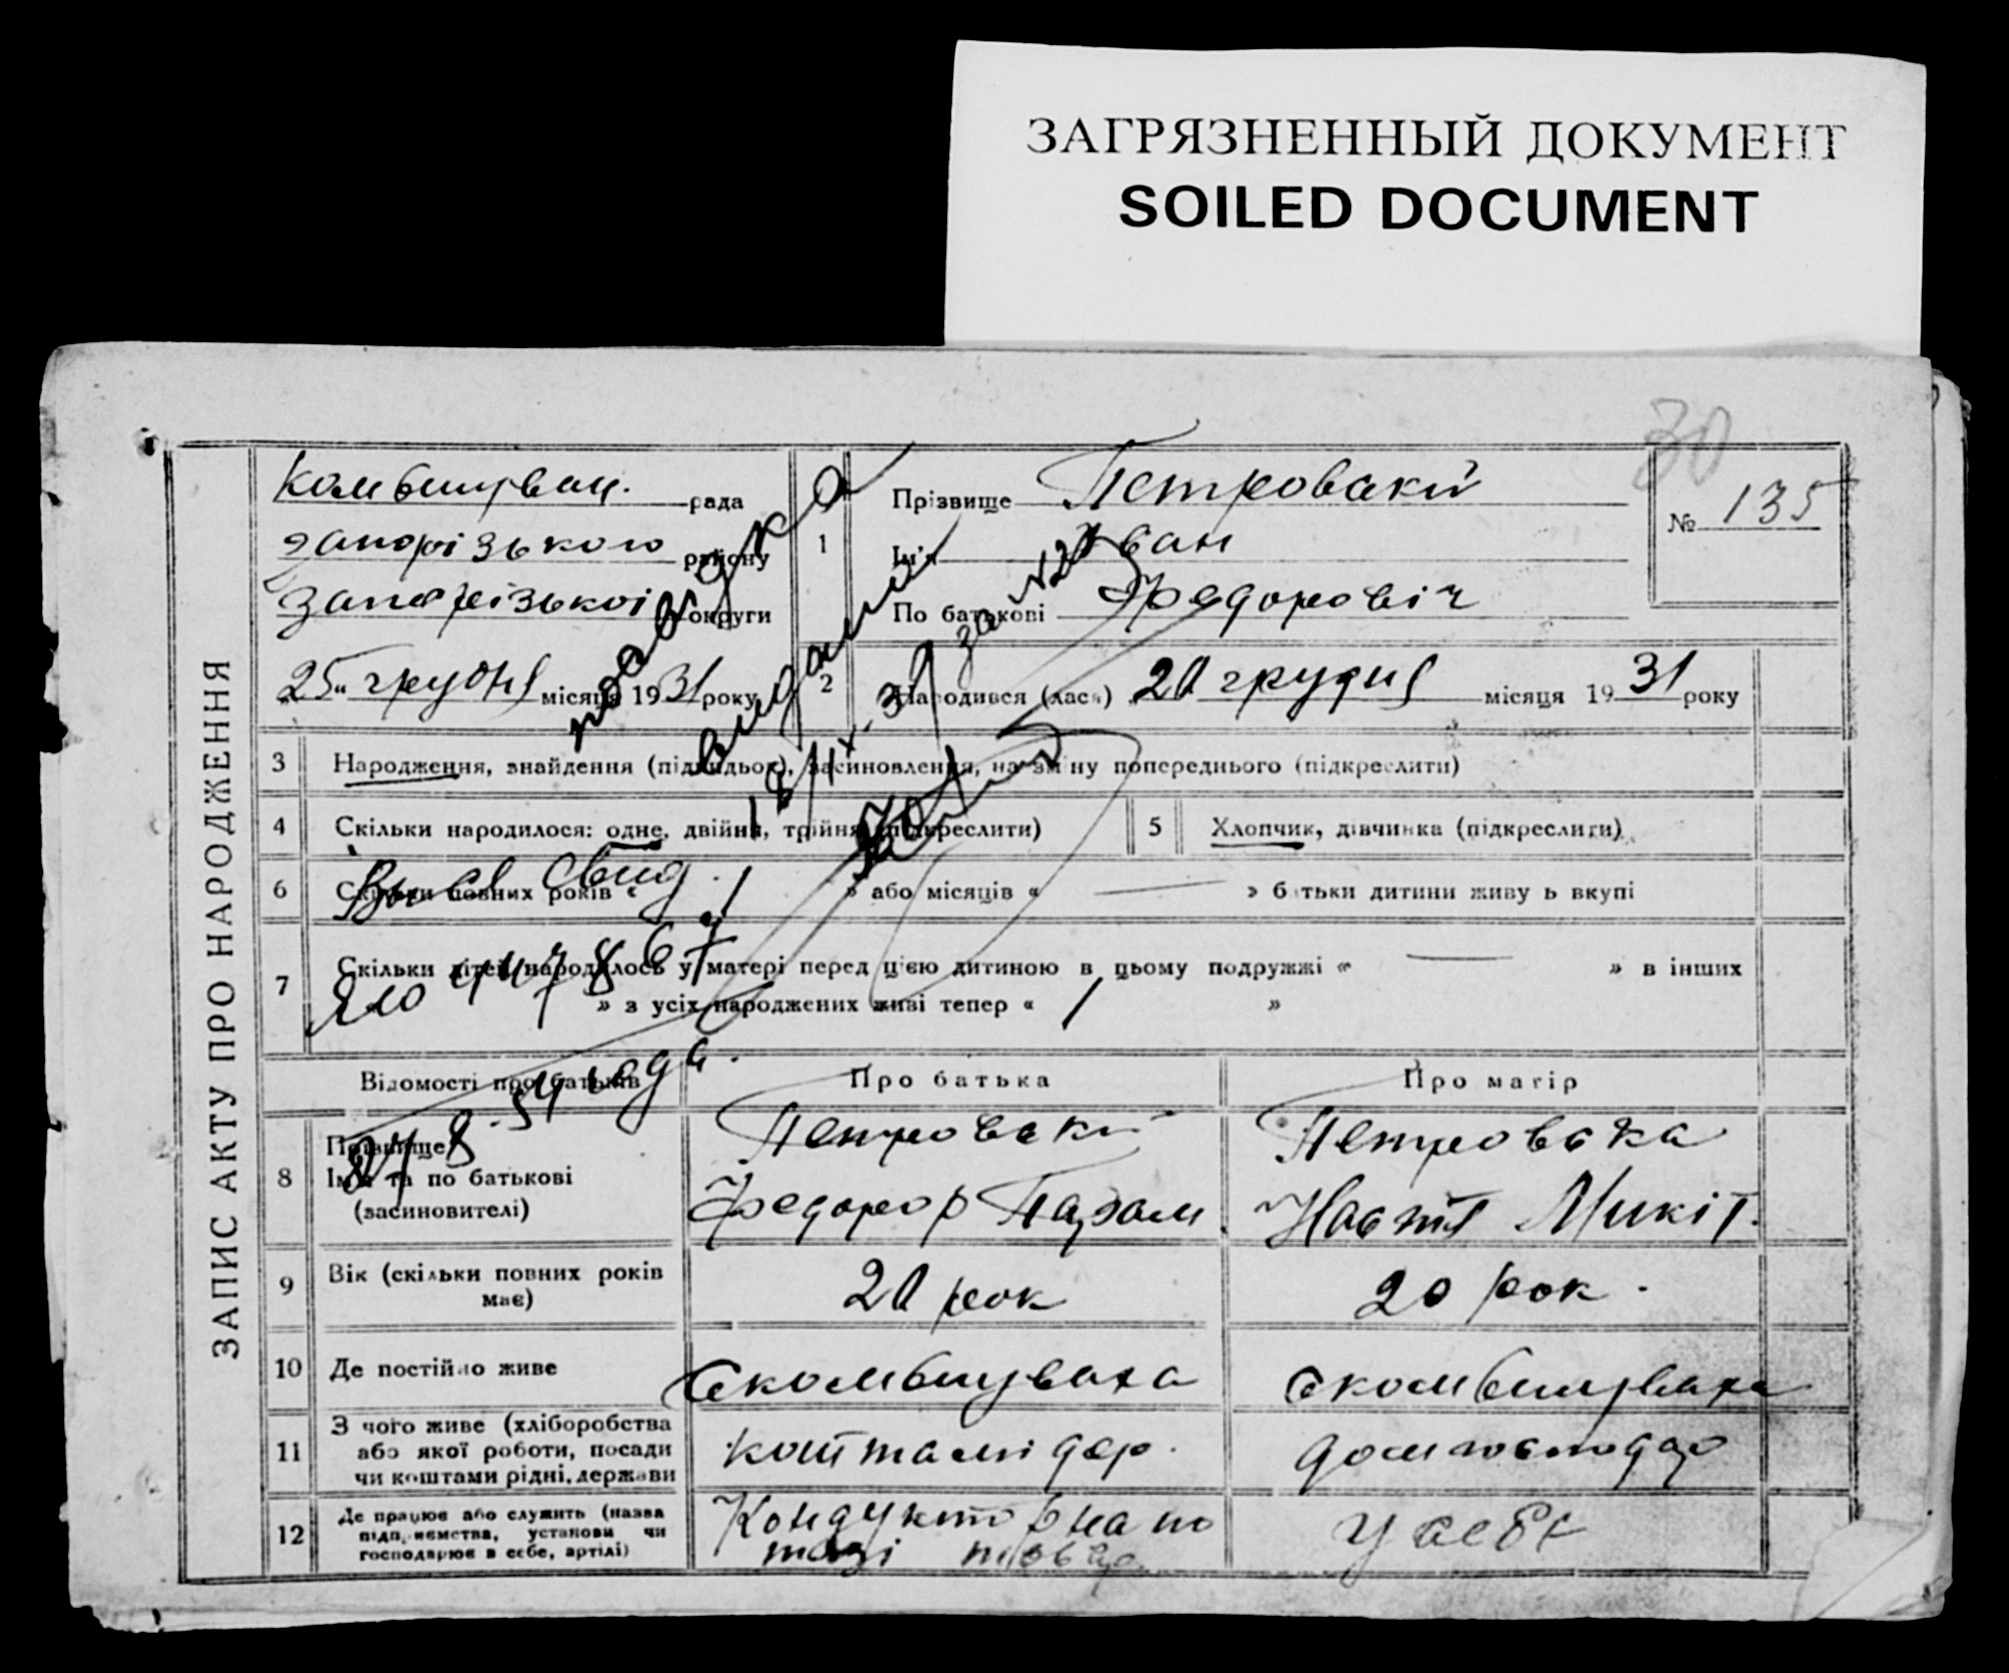 ЗАГРЯЗНЕННЫЙ ДОКУМЕНТ
SOILED DOCUMENT
30
ЗАПИС АКТУ ПРО НАРОДЖЕННЯ
Комбишуван. рада
Запорізького району
Запорізької округи
"25" грудня місяця 1931 року
1
Прізвище Петровский
Ім'я Іван
По батькові Федорович
№ 135
2
Народився (лась) 20 грудня місяця 1931 року
довидка
видана
18/IX-39 за №
3 Народження, знайдення (підкидьок), засиновлення, на зміну попереднього (підкреслити)
4 Скільки народилося: одне, двійня, трійня (підкреслити)
5 Хлопчик, дівчинка (підкреслити)
6 Скільки повних років « 1 » або місяців « — » батьки дитини живуть вкупі
Свид.
7 Скільки дітей народилось у матері перед цією дитиною в цьому подружжі « — » в інших
» з усіх народжених живі тепер « 1 »
ЯЮ
54 года.
Відомості про батьків
Про батька
Про матір
8 Прізвище
Ім'я та по батькові
(засиновителі)
Петровский
Федор
Петровска
Настя Микіт.
9 Вік (скільки повних років має)
20 рок
20 рок.
10 Де постійно живе
с Комбишуваха
с Комбишуваха
11 З чого живе (хліборобства
або якої роботи, посади
чи коштами рідні, держави
коштами дер.
12 Де працює або служить (назва
підприємства, установи чи
господарює в себе, артілі)
Кондуктор на по
у себе